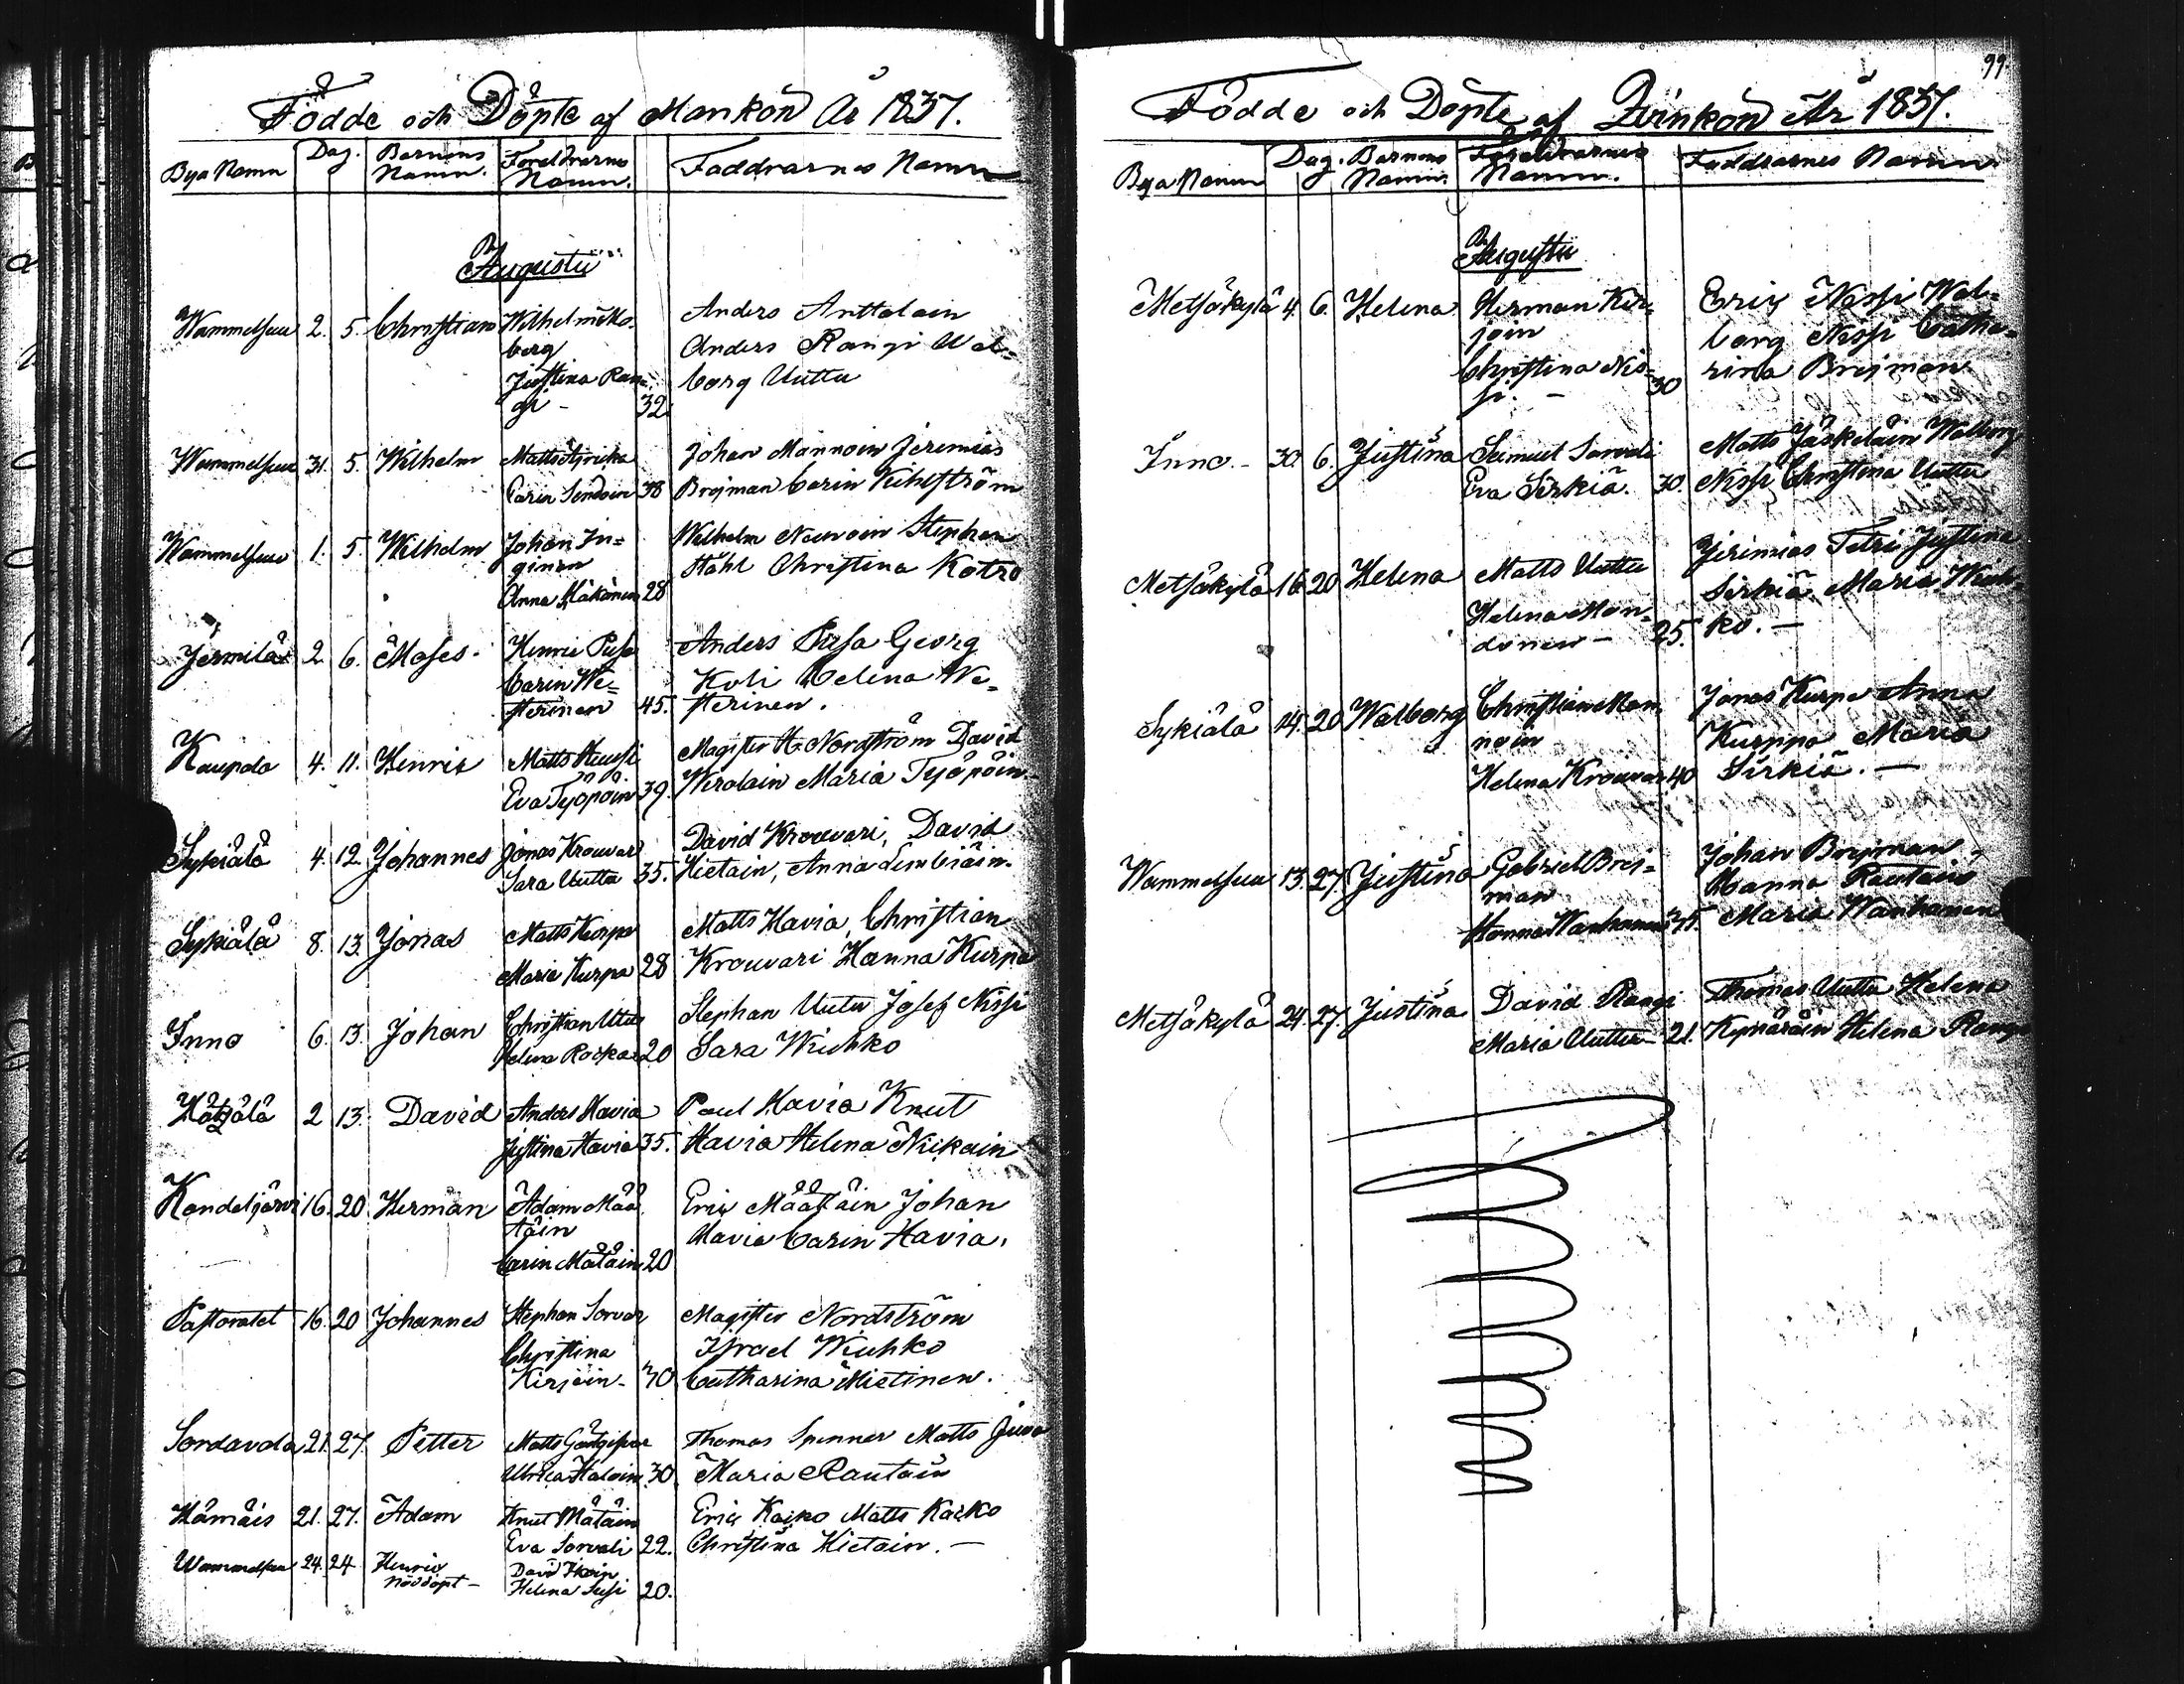 Födde och Döpte af Mankön År 1837.
Bya Namn Dag. Barnens Namn. Föräldrarnes Namn. Faddrarnes Namn
Augustii
Wammelsuu 2. 5. Christian Wilhelm
berg
Justina Ran=
gi - 32.
Anders Anttalain
Anders Rangi Wal=
borg Uuttu
Wammelsuu 31. 5. Wilhelm Matts
Carin 38
Johan Mannoin Jeremias
Brejman Carin
Wammelsuu 1. 5. Wilhelm Johan In=
ginen
Anna 28
Wilhelm Stephan
Ståhl Christina Kotro
Jermilä 2. 6. Moses. Henric Pusa
Carin We=
sterinen 45.
Anders Pusa Georg
Koli Helena We=
sterinen.
Kaupola 4. 11. Henric Matts
Eva Työpöin 39.
Magister H. Nordström David
Wirolain Maria Työpöin
Sykiälä 4. 12. Johannes Jonas Krouvar
Sara Uuttu 35.
David Krouvari, David
Hietain, Anna Limbiäin.
Sykiälä 8. 13. Jonas Matts Kurpa
Maria Kurpa 28
Matts Havia, Christian
Krouvari Hanna Kurpa
Inno 6. 13. Johan Christian Uttu
Helena 20
Stephan Uutu Josef Nissi
Sara Wiuhko
Hätjälä 2 13. David Anders Havia
Justina Havia 35.
Paul Havia Knut
Havia Helena Niikain
Kandeljärvi 16. 20. Herman Adam Mää
täin
Carin Mätäin 20
Eric Määtäin Johan
Havia Carin Havia.
Pastoratet 16. 20 Johannes Stephan Sorvar
Christina
Kirjoin - 40
Magister Nordström
Israel Wiuhko
Catharina Mietinen.
Sordavala 21. 27. Petter Matts
Ulrica 30.
Thomas Spennar Matts
Maria Rautain
Hämäis 21. 27. Adam Knut Mätäin
Eva Sorvali 22.
Eric Kaiko Matts Kaiko
Christina Hietain. -
Wammelsuu 24. 24 Henric
Nöddöpt -
David
Helena Susi 20.
99.
Födde och Döpte af Qvinkön År 1837.
Bya Namn Dag. Barnens Namn. Föräldrarnes Namn. Faddrarnes Namn
Augustii
Metsäkylä 4. 6. Helena Herman Kir=
join
Christina Nis=
si. - 30
Eric Nissi Wal=
borg Nissi Catha=
rina Brejman.
Inno. - 30. 6. Justina Samuel Sorvali
Eva Sirkiä. 30.
Matts Jäskeläin Walborg
Nissi Christina Uuttu
Metsäkylä 16. 20 Helena Matts Uuttu
Helena Mon=
donen - 25.
Jeremias Tetri Justina
Sirkiä Maria Wiuh=
ko. -
Sykiälä 14. 20 Walborg Christian Man
noin
Helena Krouvar 40
Jonas Kurpa Anna
Kurppa Maria
Sirkiä. -
Wammelsuu 13. 27. Justina Gabriel Brej=
man
Hanna Wanhanen 25.
Johan Brejman
Hanna Rautain
Maria Wanhanen
Metsäkylä 24. 27. Justina David Rangi
Maria Uuttu - 21.
Thomas Uuttu Helena
Kynäräin Helena Rangi